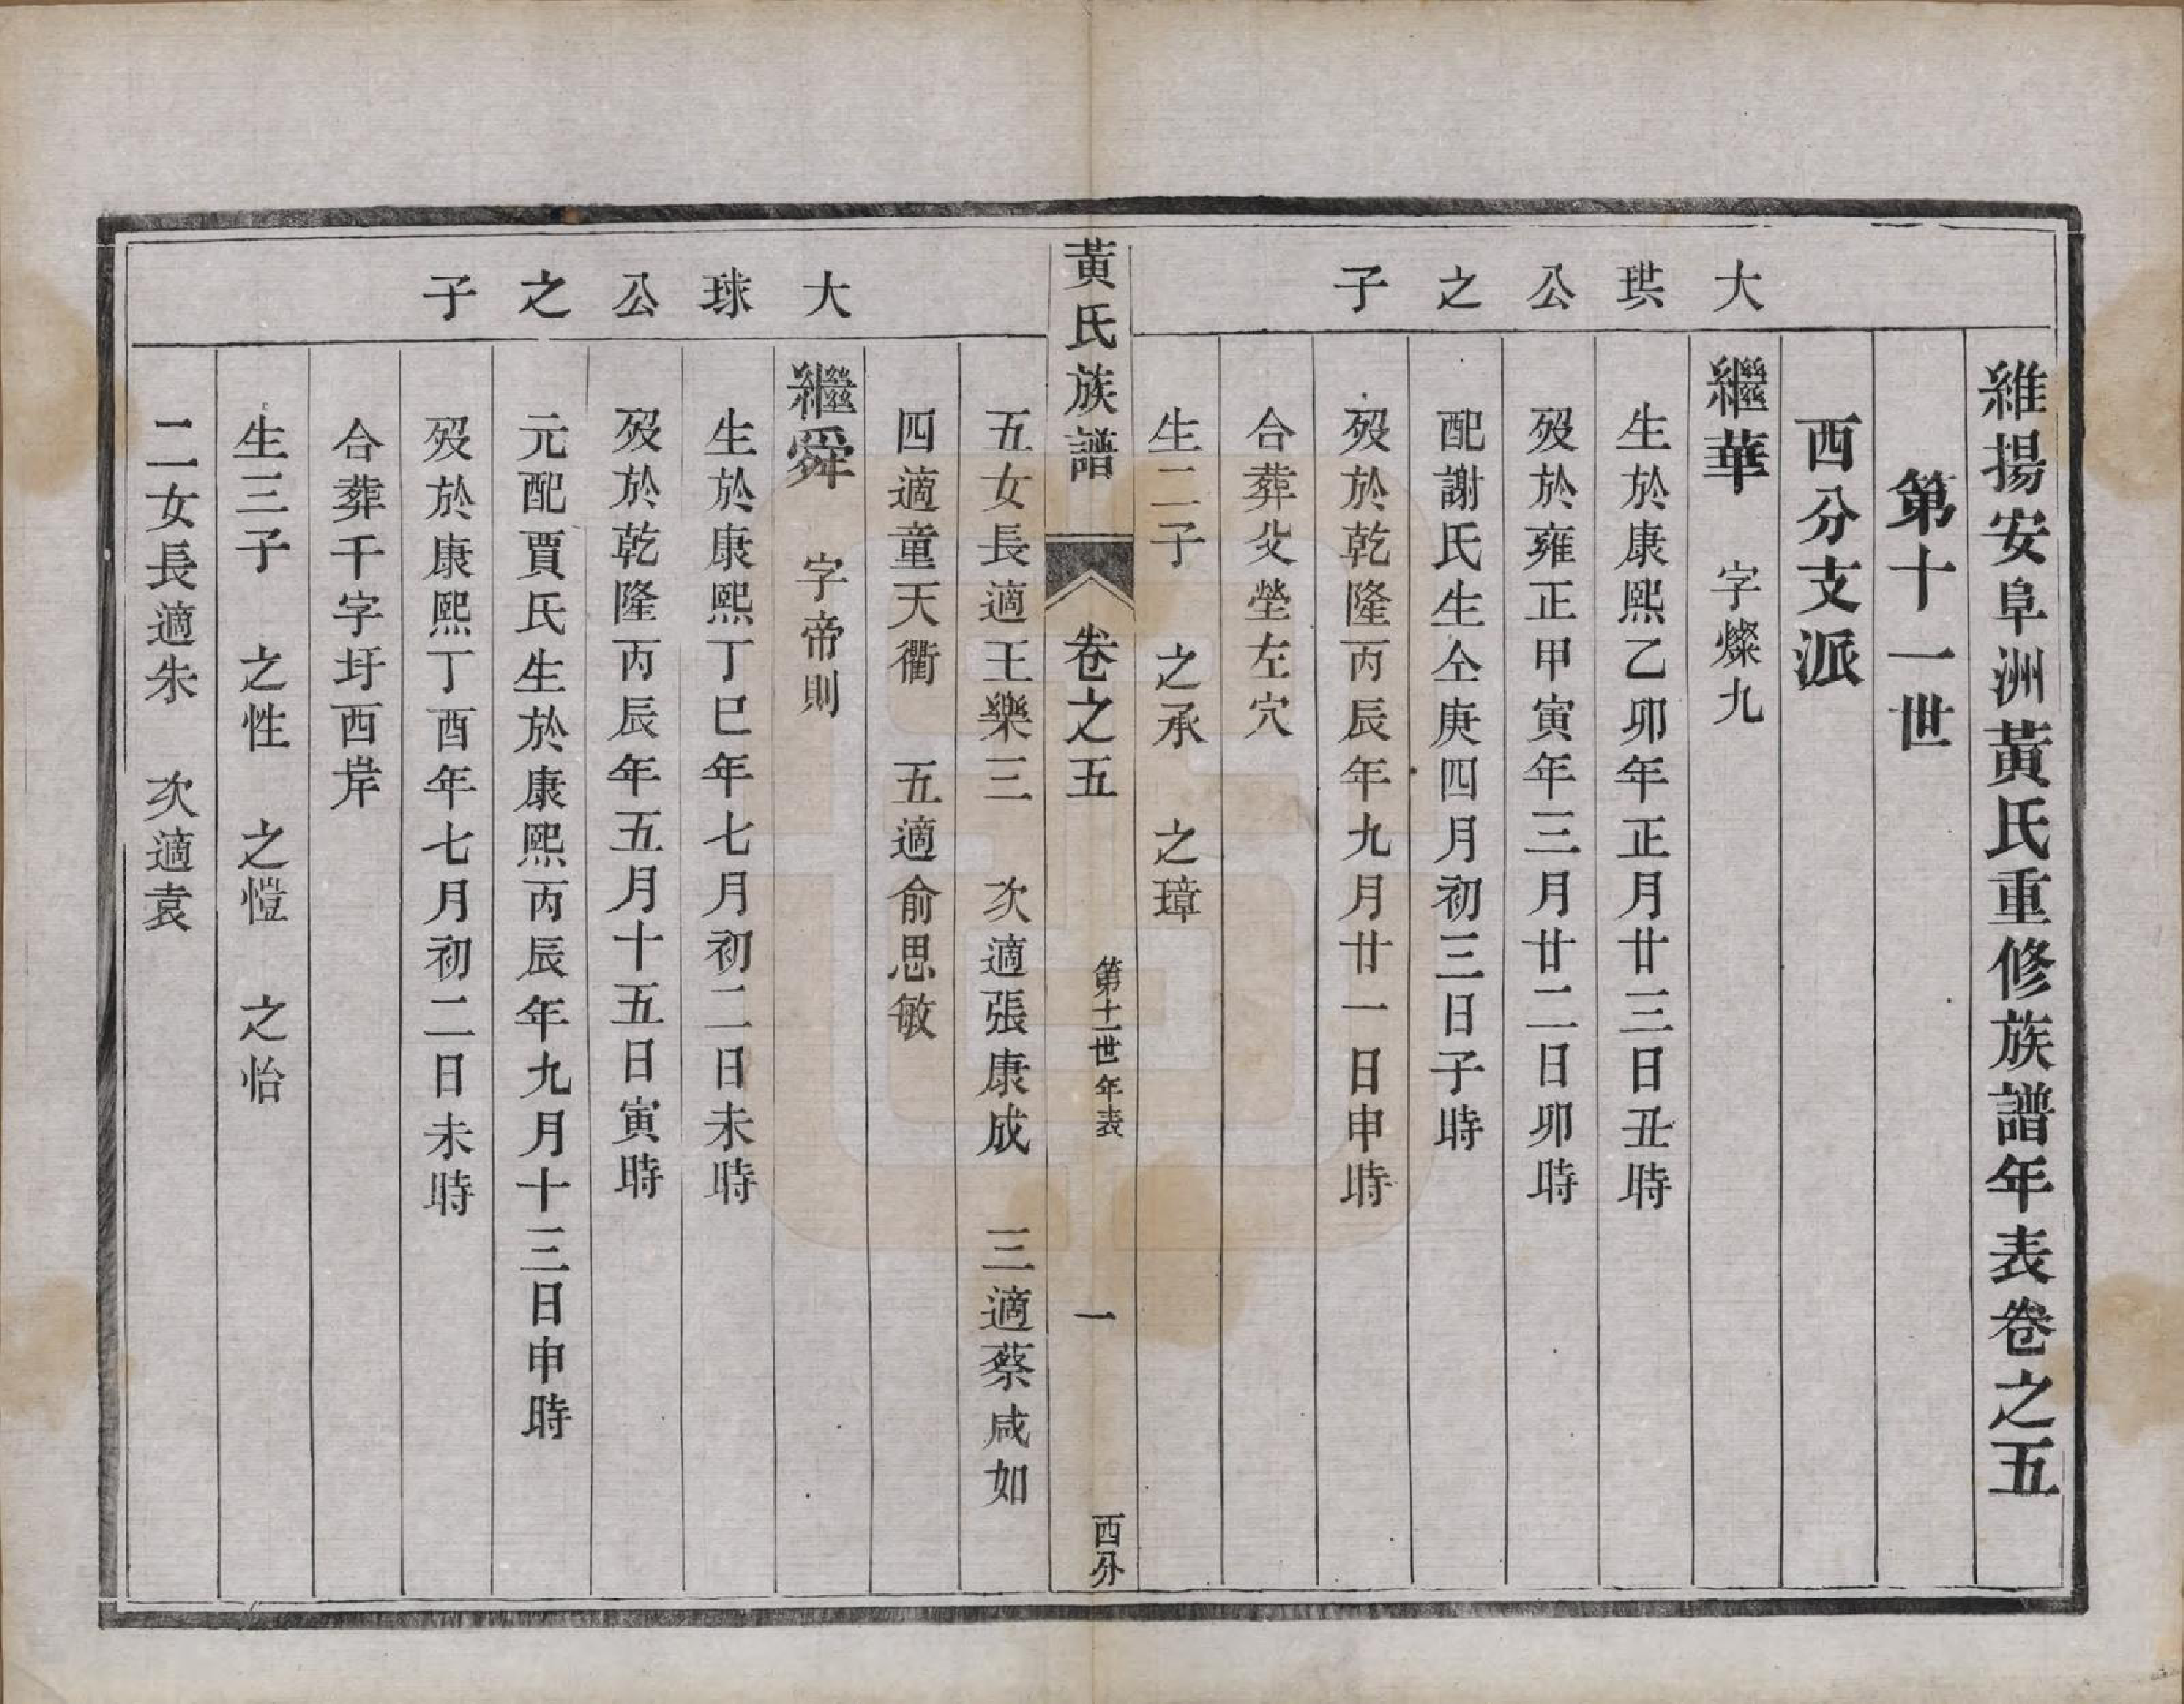 維揚安阜洲黃氏重修族譜年表卷之五
第十一世
西分支派
大珙公之子
繼華　字燦九
生於康熙乙卯年正月廿三日丑時
歿於雍正甲寅年三月廿二日卯時
配謝氏生仝庚四月初三日子時
歿於乾隆丙辰年九月廿一日申時
合葬父塋左穴
生二子　之承　之璋
黃氏族譜　卷之五　第十一世年表　一　西分
五女長適王樂三　次適張康成　三適蔡咸如
四適童天衢　五適俞思敏
大球公之子
繼舜　字帝則
生於康熙丁巳年七月初二日未時
歿於乾隆丙辰年五月十五日寅時
元配賈氏生於康熙丙辰年九月十三日申時
歿於康熙丁酉年七月初二日未時
合葬千字圩西岸
生三子　之性　之愷　之怡
二女長適朱　次適袁